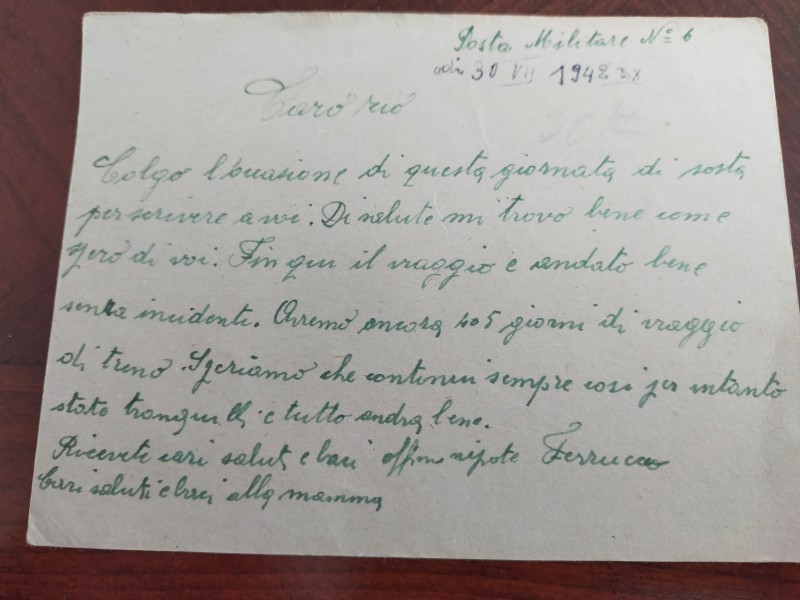 Posta Militare Nº 6
addì 30 VII 1942 XX
Caro zio
Colgo l'occasione di questa giornata di sosta
per scrivere a voi. Di salute mi trovo bene come
spero di voi. Fin qui il viaggio è andato bene
senza incidenti. Avremo ancora 4 o 5 giorni di viaggio
di treno. Speriamo che continui sempre così per intanto
state tranquilli e tutto andrà bene.
Ricevete cari saluti e baci aff.mo nipote Ferruccio
Cari saluti e baci alla mamma